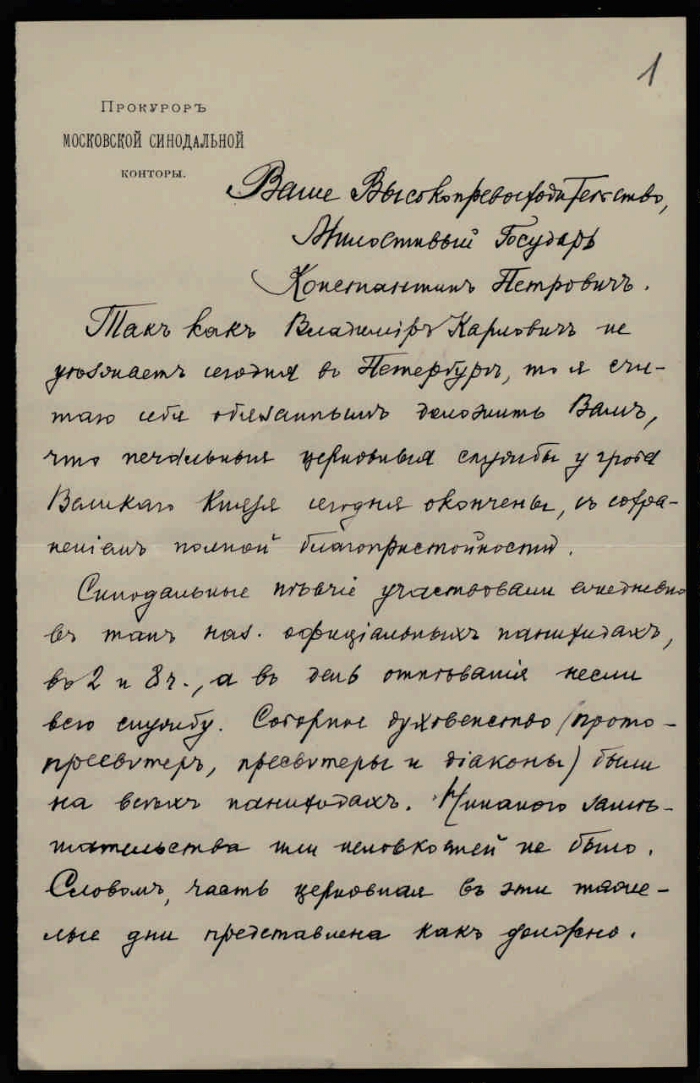 1
Прокуроръ
МОСКОВСКОЙ СИНОДАЛЬНОЙ
КОНТОРЫ.
Ваше Высокопревосходительство,
Милостивый Государь
Константинъ Петровичъ.
Такъ какъ Владиміръ Карловичъ не
уѣзжаетъ сегодня въ Петербургъ, то я счи-
таю себя обязаннымъ доложить Вамъ,
что печальныя церковныя службы у гроба
Великаго Князя сегодня окончены, съ сохра-
неніемъ полной благопристойности.
Синодальные пѣвчіе участвовали ежедневно
въ такъ наз. оффиціальныхъ панихидахъ,
въ 2 и 8 ч., а въ день отпѣванія несли
всю службу. Соборное духовенство (прото-
пресвитеръ, пресвитеры и діаконы) были
на всѣхъ панихидахъ. Никакого замѣ-
шательства или неловкостей не было.
Словомъ, часть церковная въ эти тяже-
лые дни представлена какъ должно.